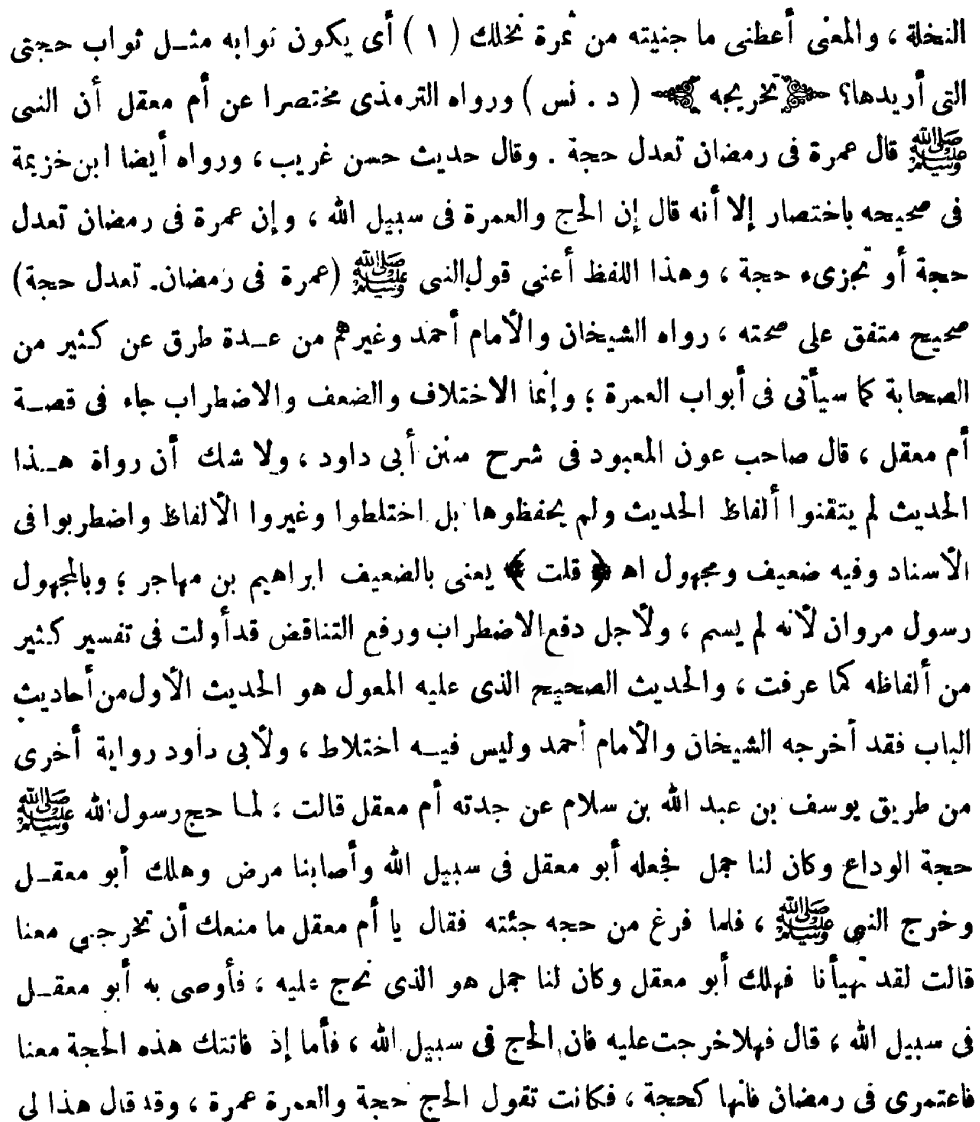 النخلة ، والمعنى أعطنى ما جنيته من ثمرة نخلك ( ١ ) أى يكون ثوابه مثل ثواب حجتى
التى أريدها؟ ﴿ تخريجه ﴾ ( د . نس ) ورواه الترمذى مختصرا عن أم معقل أن النبى
ﷺ قال عمرة فى رمضان تعدل حجة . وقال حديث حسن غريب ، ورواه أيضا ابن خزيمة
فى صحيحه باختصار إلا أنه قال إن الحج والعمرة فى سبيل الله ، وإن عمرة فى رمضان تعدل
حجة أو تجزىء حجة ، وهذا اللفظ أعنى قول النبى ﷺ (عمرة فى رمضان . تعدل حجة)
صحيح متفق على صحته ، رواه الشيخان والأمام أحمد وغيرهم من عدة طرق عن كثير من
الصحابة كما سيأتى فى أبواب العمرة ؛ وإنما الاختلاف والضعف والاضطراب جاء فى قصة
أم معقل ، قال صاحب عون المعبود فى شرح سنن أبى داود ، ولا شك أن رواة هذا
الحديث لم يتقنوا ألفاظ الحديث ولم يحفظوها بل اختلطوا وغيروا الألفاظ واضطربوا فى
الأسناد وفيه ضعيف ومجهول اه ﴿ قلت ﴾ يعنى بالضعيف ابراهيم بن مهاجر ؛ وبالمجهول
رسول مروان لأنه لم يسم ، ولأجل دفع الاضطراب ورفع التناقض قد أولت فى تفسير كثير
من ألفاظه كما عرفت ، والحديث الصحيح الذى عليه المعول هو الحديث الأول من أحاديث
الباب فقد أخرجه الشيخان والأمام أحمد وليس فيه اختلاط ، ولأبى داود رواية أخرى
من طريق يوسف بن عبد الله بن سلام عن جدته أم معقل قالت : لما حج رسول الله ﷺ
حجة الوداع وكان لنا جمل فجعله أبو معقل فى سبيل الله وأصابنا مرض وهلك أبو معقل
وخرج النبى ﷺ ، فلما فرغ من حجه جئته فقال يا أم معقل ما منعك أن تخرجى معنا
قالت لقد تهيأنا فهلك أبو معقل وكان لنا جمل هو الذى نحج عليه ، فأوصى به أبو معقل
فى سبيل الله ، قال فهلا خرجت عليه فان الحج فى سبيل الله ، فأما إذ فاتتك هذه الحجة معنا
فاعتمرى فى رمضان فانها كحجة ، فكانت تقول الحج حجة والعمرة عمرة ، وقد قال هذا لى